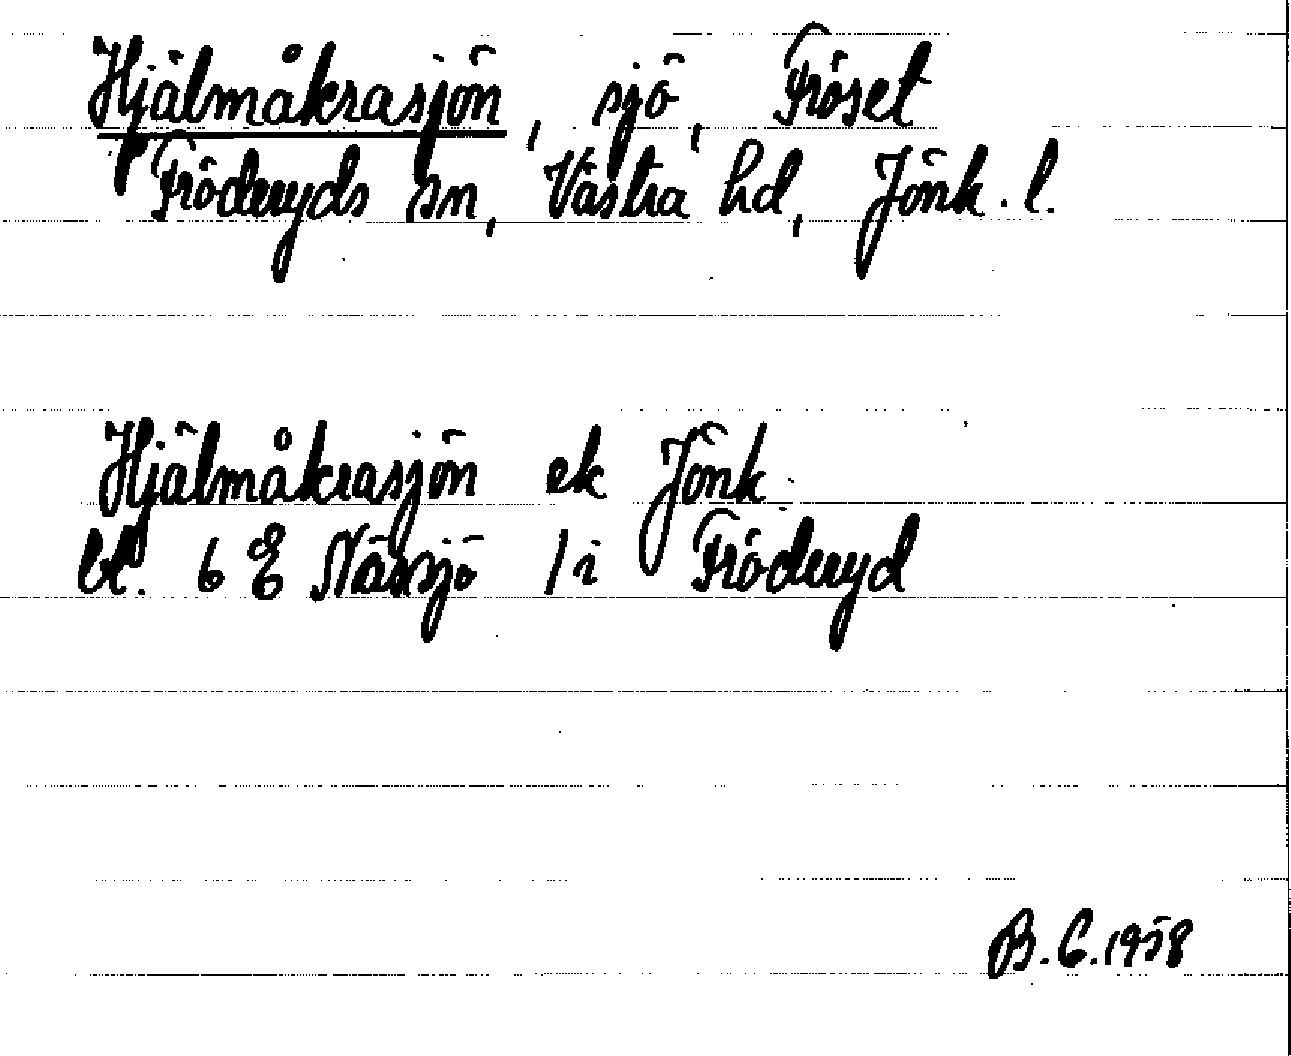 Hjälmåkrasjön, sjö, Fröset
Fröderyds sn, Västra hd, Jönk. l.
Hjälmåkrasjön ek Jönk.
bl. 6 E Nässjö / i Fröderyd
B.C.1958